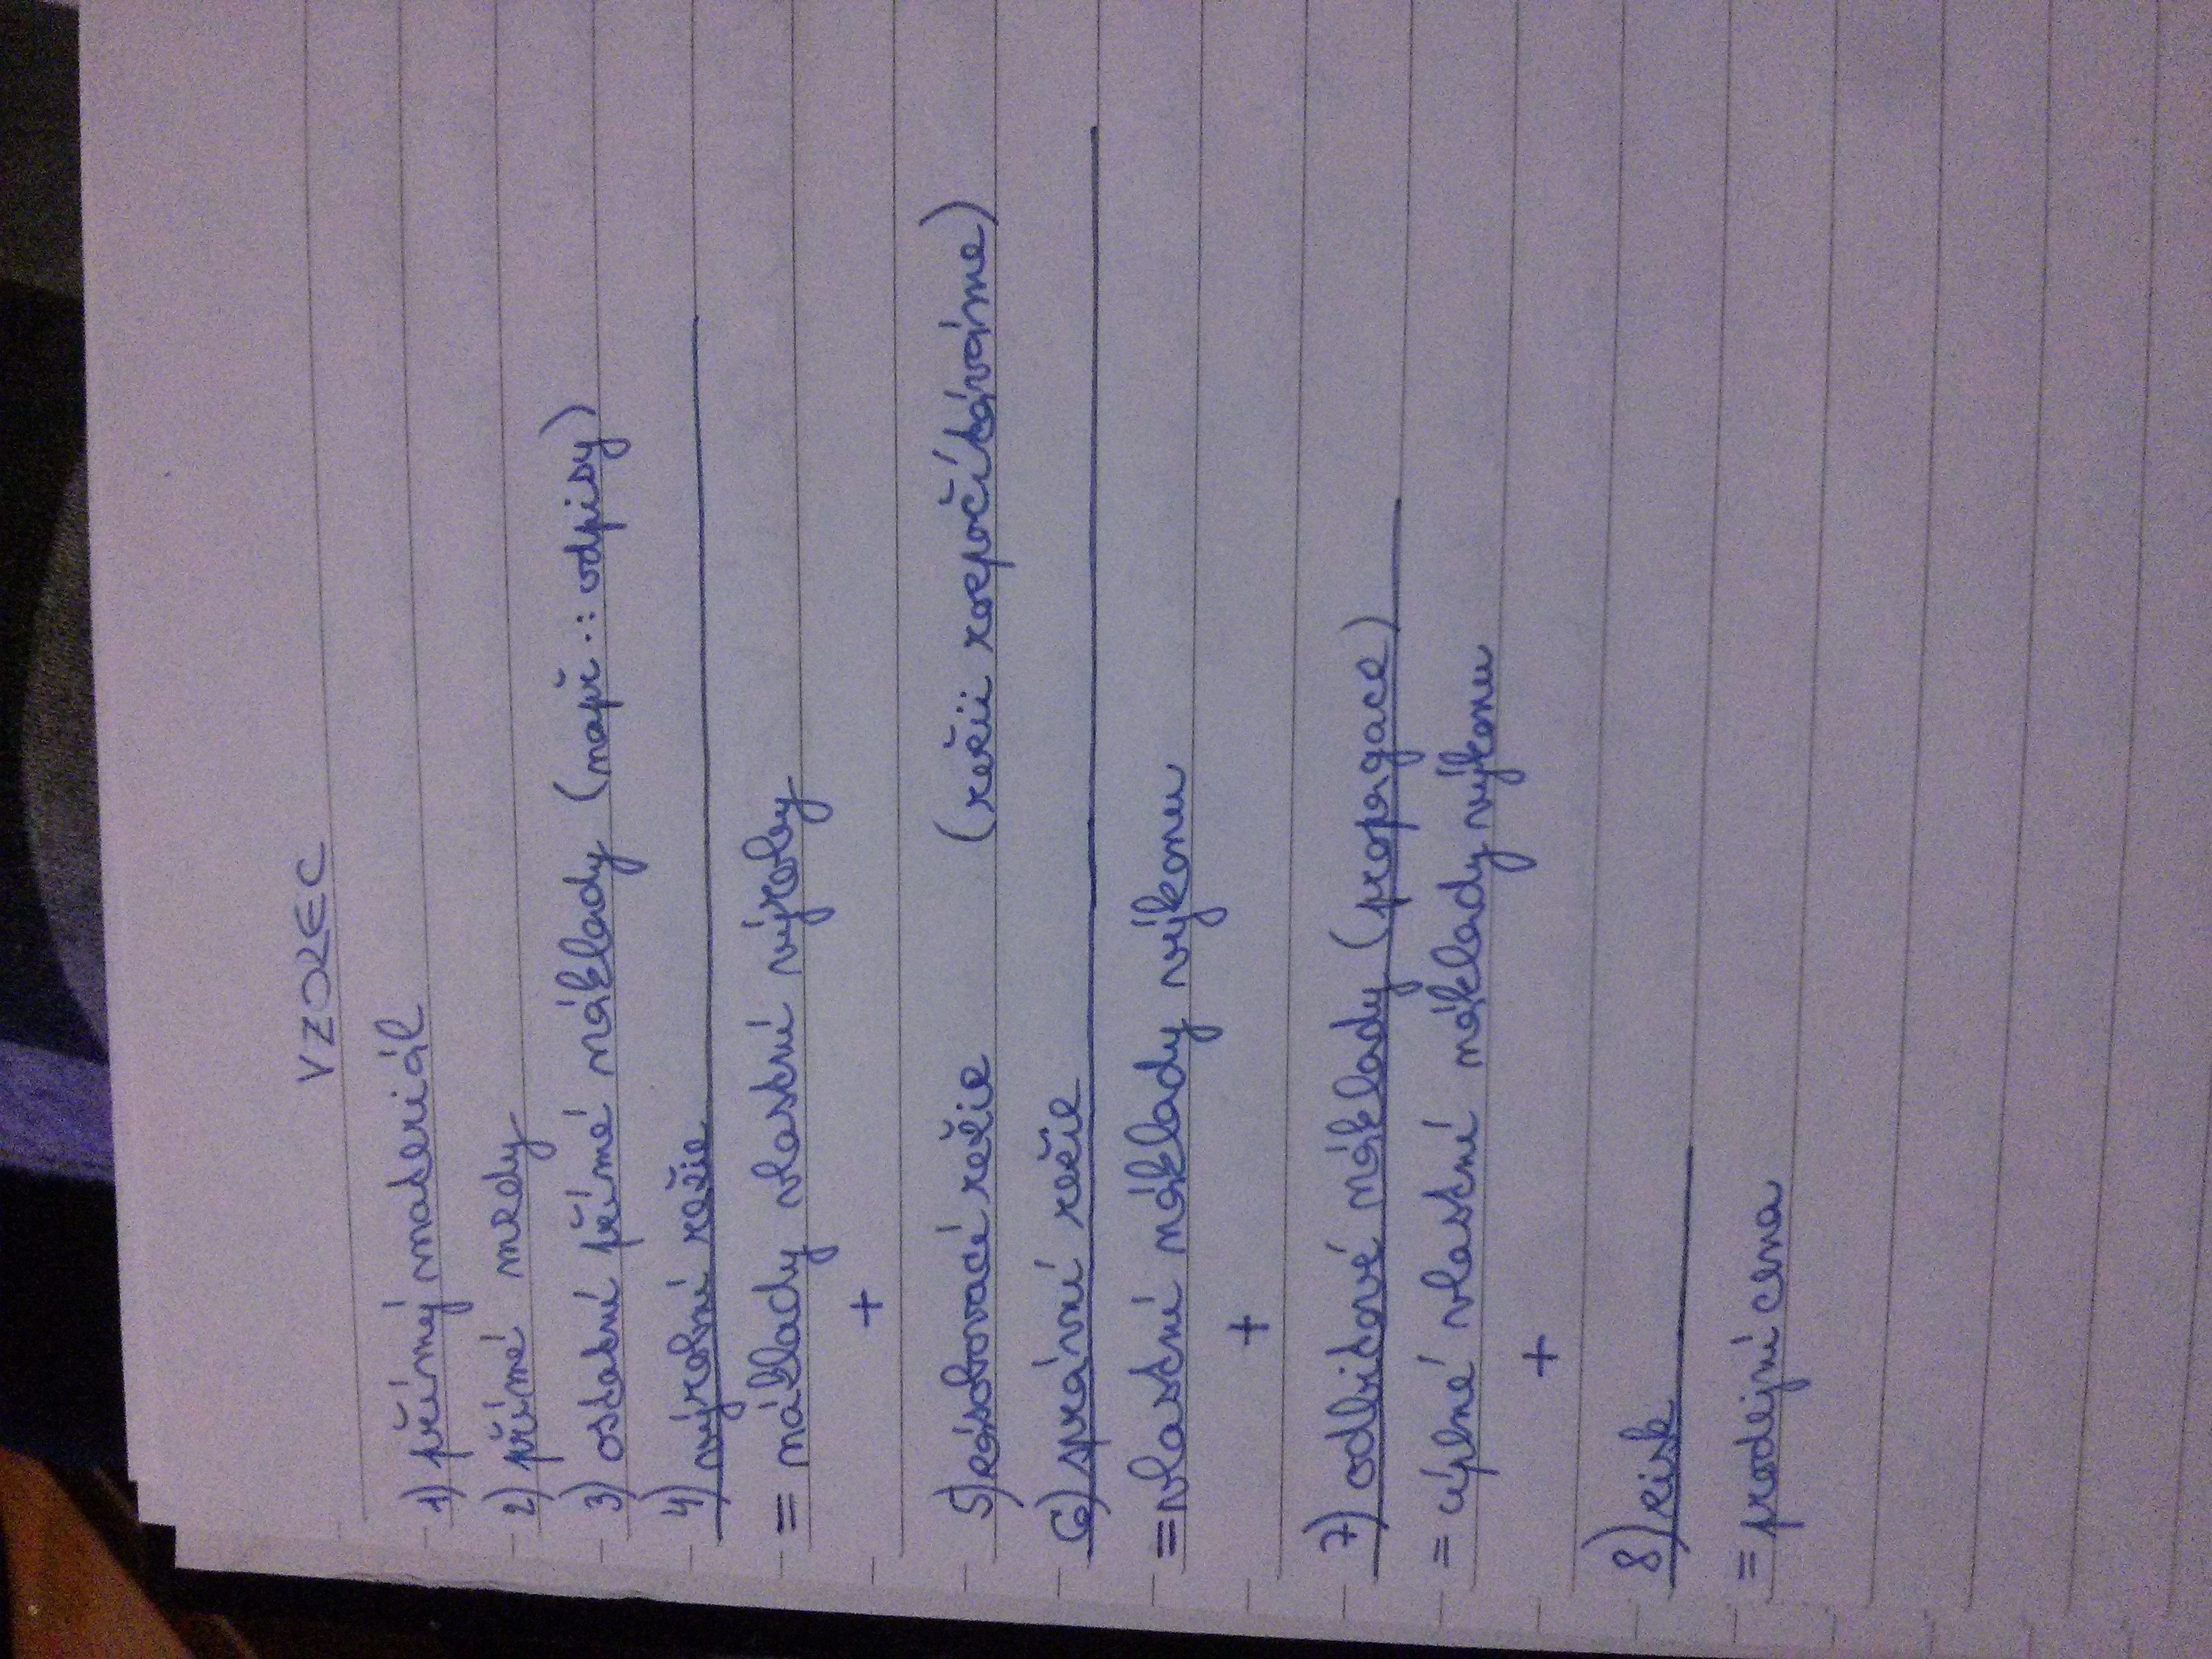 VZOREC
1) přímý materiál
2) přímé mzdy
3) ostatní přímé náklady (např.: odpisy)
4) výrobní režie
= náklady vlastní výroby
+
5) zásobovací režie (režii rozpočítáváme)
6) správní režie
= vlastní náklady výkonu
+
7) odbytové náklady (propagace)
= úplné vlastní náklady výkonu
+
8) zisk
= prodejní cena